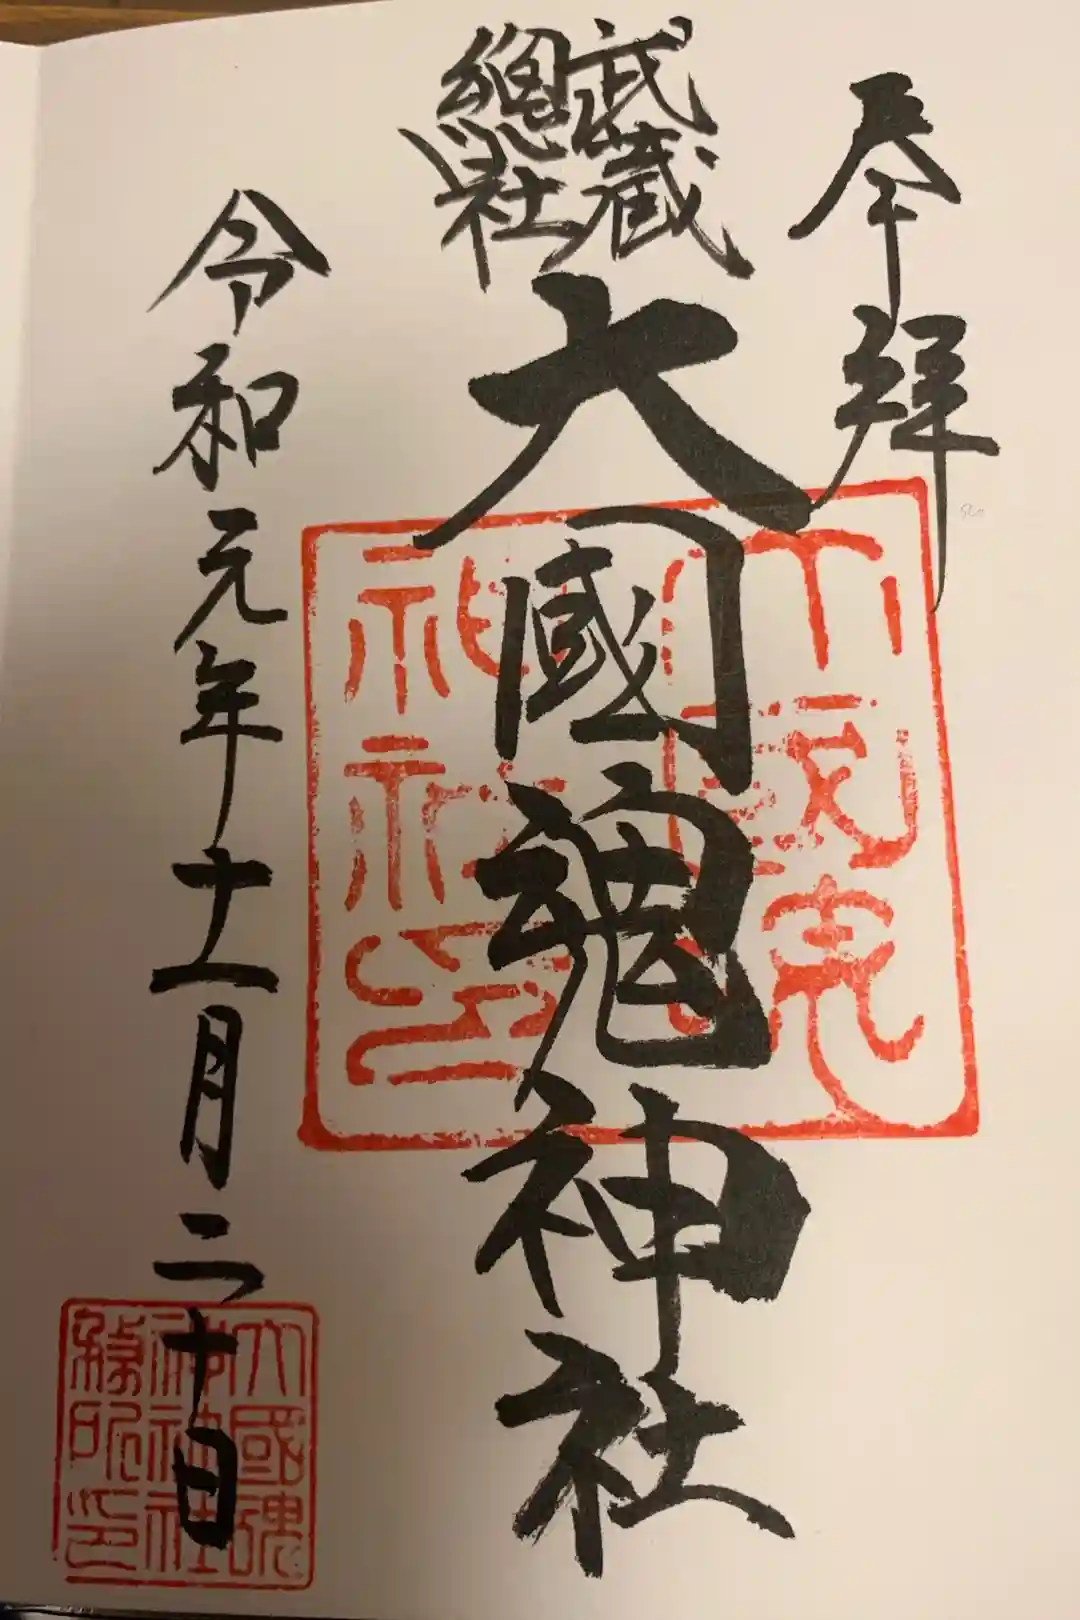 奉拝
武蔵
總社
大國魂神社
大國魂
神社印
令和元年十一月二十日
大國魂
神社社
務所印